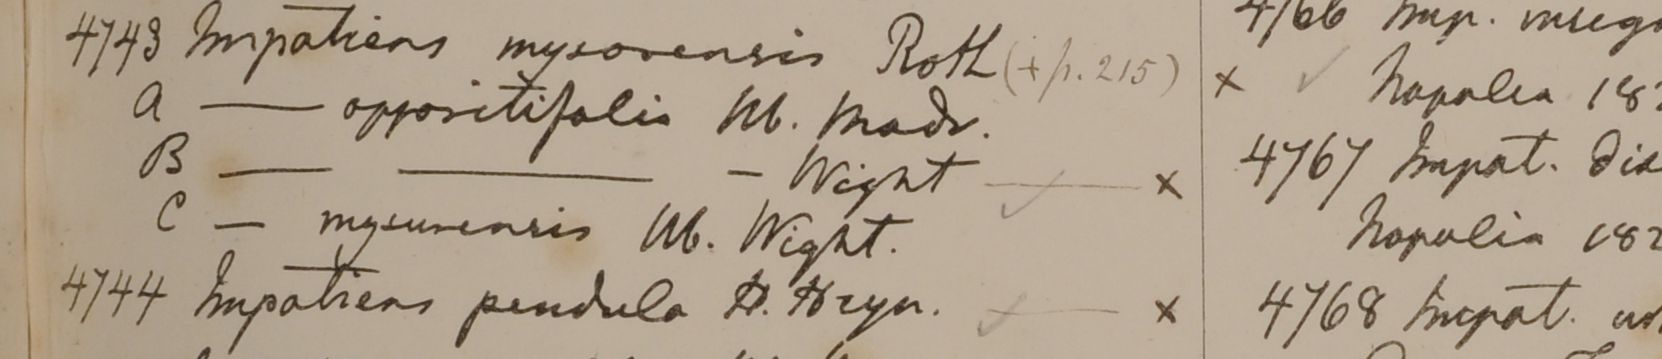 4743 Impatiens mysorensis Roth (+p. 215) ×
A — oppositifolia Hb. Madr.
B — — — Wight — ×
C — mysurensis Hb. Wight.
4744 Impatiens pendula H. Heyn. — ×
4766 Imp. integ
Napalia 182
4767 Impat. dis
Napalia 182
4768 Impat.